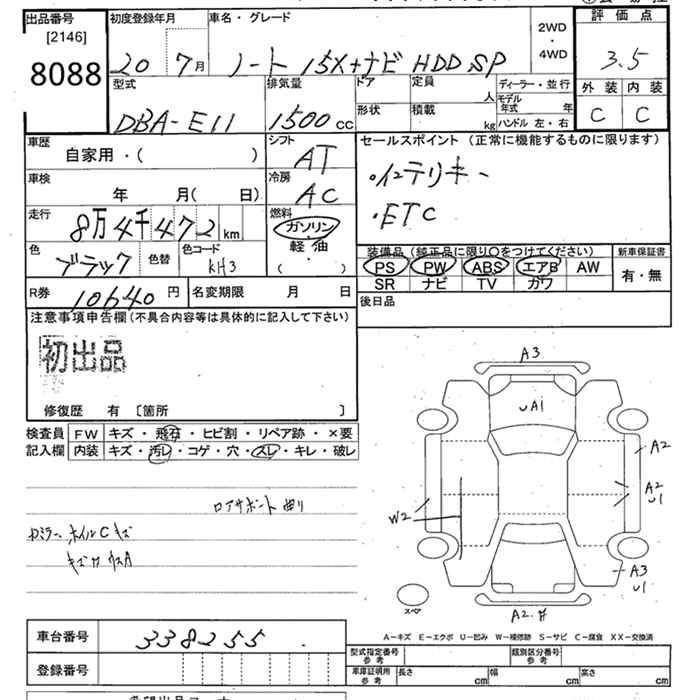 出品番号
[2146]
8088
初度登録年月
20 7月
車名・グレード
ノート 15X+ナビ HDD SP
2WD
・
4WD
評価点
3.5
外装 内装
C C
型式
DBA-E11
排気量
1500 cc
ドア
定員
人
形状
積載
kg
ディーラー・並行
モデル年式 年
ハンドル 左・右
車歴
自家用・( )
シフト
AT
車検
年 月( 日)
冷房
AC
走行
8万4千472 km
燃料
ガソリン
軽油
( )
色
ブラック
色替
色コード
KH3
セールスポイント (正常に機能するものに限ります)
・インテリキー
・ETC
装備品 (純正品に限り○をつけてください)
PS PW ABS エアB AW
SR ナビ TV カワ
新車保証書
有・無
R券 10640 円
名変期限 月 日
後日品
注意事項申告欄 (不具合内容等は具体的に記入して下さい)
初出品
修復歴 有 〔箇所 〕
検査員記入欄
FW キズ・飛石・ヒビ割・リペア跡・×要
内装 キズ・汚レ・コゲ・穴・スレ・キレ・破レ
ロアサポート曲り
ホイルCキズ
A3
UA1
A2
A2
U1
W2
A3
U1
スペア
A2
A-キズ E-エクボ U-凹み W-補修跡 S-サビ C-腐食 XX-交換済
車台番号 338255
登録番号
型式指定番号
参考
類別区分番号
参考
車庫証明用
参考
長さ cm
幅 cm
高さ cm